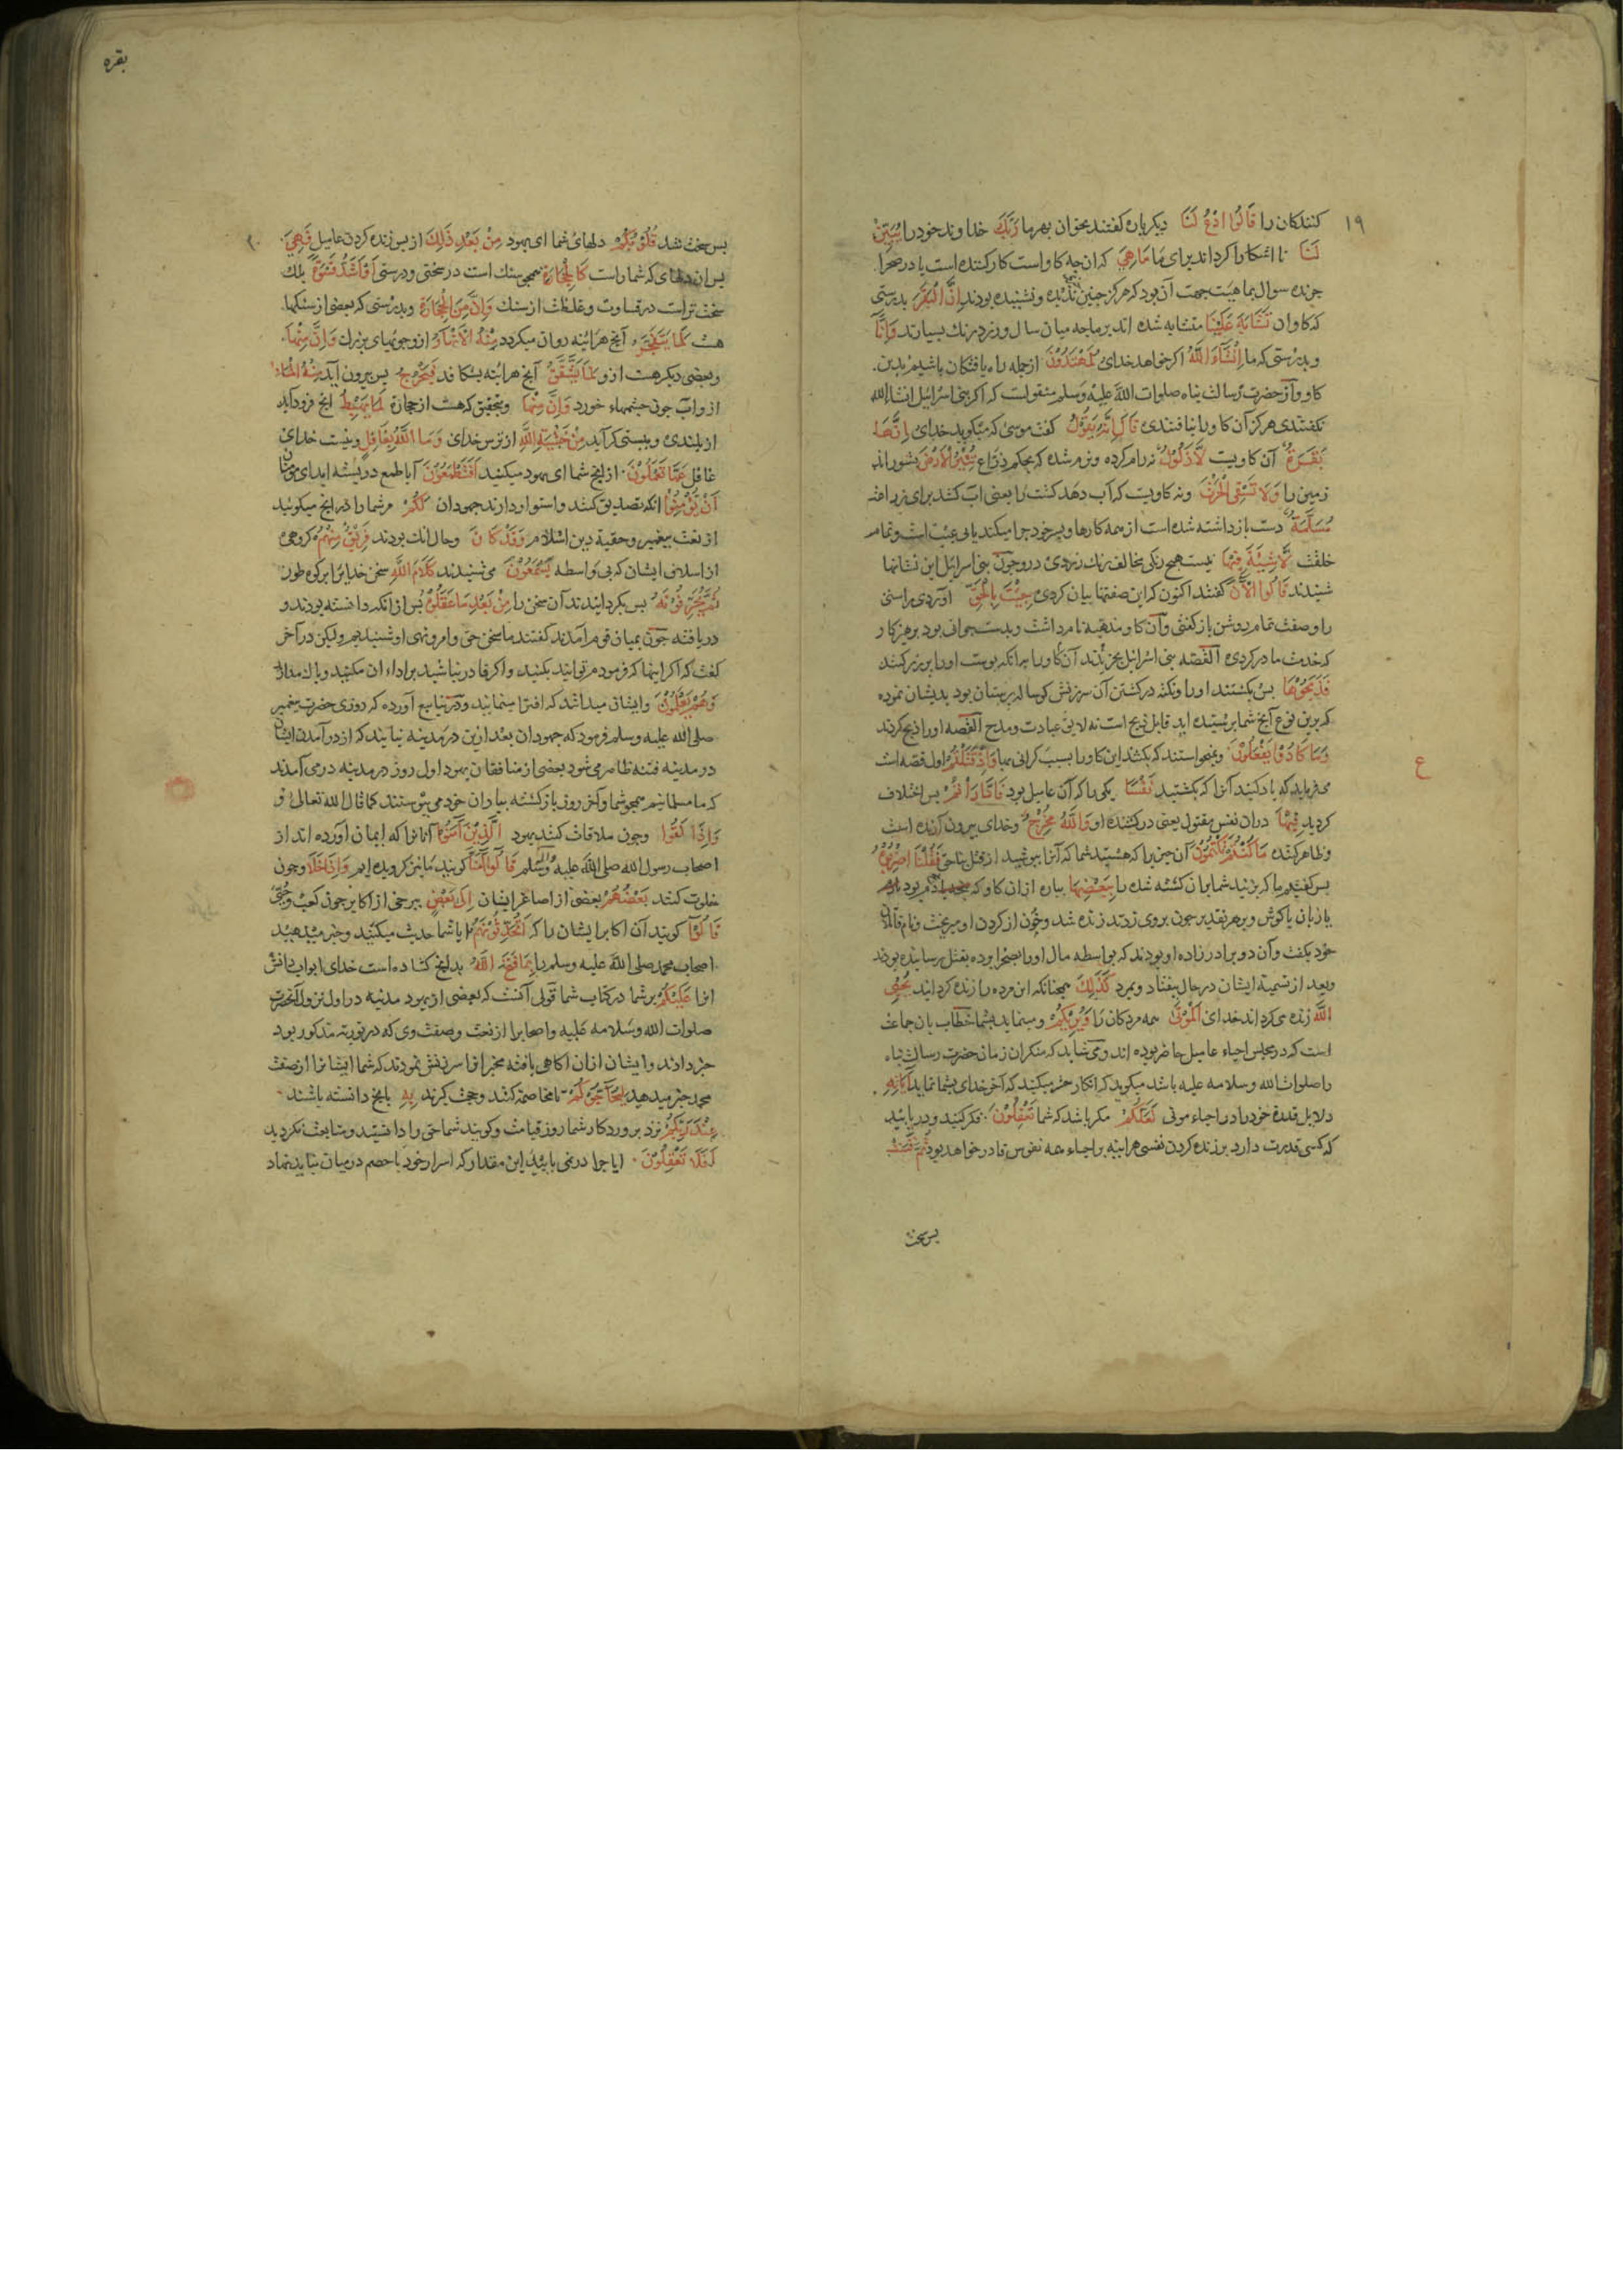 ۱۹
کنندکان را قَالُوا ادْعُ لَنَا دیکر باره کفتند بخوان بهر ما رَبَّكَ خداوند خود را یُبَیِّنْ
لَنَا تا اشکارا کرداند برای ما مَا هِيَ که ان چه کاو است کارکننده است یا در صحرا
چرنده سوال بما هیت جهت آن بود که هرکز چنین ندیده و نشنیده بودند اِنَّ الْبَقَرَ بدرستی
که کاوان تَشَابَهَ عَلَیْنَا متشابه شده اند بر ما چه میان سال و زرد رنك بسیارند وَاِنَّا
و بدرستی که ما اِنْشَاءَ اللّٰهُ اکر خواهد خدای لَمُهْتَدُوْنَ ازجمله راه یافتکان باشیم بدین
کاو و از حضرت رسالت پناه صلوات اللّٰه علیه وسلم منقولست که اکر بنی اسرائیل انشا اللّٰه
نکفتندی هرکز آن کاو را نیافتندی قَالَ اِنَّهُ یَقُوْلُ کفت موسی که میکوید خدای اِنَّهَا
بَقَرَةٌ آن کاویست لَاذَلُوْلٌ نه رام کرده و نرم شده که بحکم ذراع تُثِیْرُ الْاَرْضَ بشوراند
زمین را وَلَا تَسْقِی الْحَرْثَ و نه کاویست که آب دهد کشت را یعنی اب کشد برای زراعت
مُسَلَّمَةٌ دست بازداشته شده است از همه کارها و بسر خود چرا میکند یا بی عیب است و تمام
خلقت لَاشِیَةَ فِیْهَا نیست هیچ رنکی مخالف رنك زردی درو چون بنی اسرائیل این نشانها
شنیدند قَالُوا الْاٰنَ کفتند اکنون که این صفتها بیان کردی جِئْتَ بِالْحَقِّ اوردی براستی
را وصفت تمام روشن باز کفتی و آن کاو مذهبه نام داشت و بدست جوانی بود پرهیزکار
که خدمت مادر کردی القصه بنی اسرائیل بخریدند آن کاو را بر آنکه پوست او را پر زر کنند
فَذَبَحُوْهَا پس بکشتند او را و نکته در کشتن آن سرزنش کوساله پرستان بود بدیشان نموده
که برین نوع آنچ شما پرستیده اید قابل ذبح است نه لایق عبادت ومدح القصه او را ذبح کردند
وَمَا كَادُوْا یَفْعَلُوْنَ و نمیخواستند که بکشند این کاو را بسبب کرانی بها وَاِذْ قَتَلْتُمْ اول قصه است
میفرماید که یاد کنید آنرا که بکشتید نَفْسًا یکی را که آن عامیل بود فَادَّارَاْتُمْ پس اختلاف
کردید فِیْهَا دران نفس مقتول یعنی درکشنده او وَاللّٰهُ مُخْرِجٌ وخدای بیرون آرنده است
و ظاهر کننده مَا كُنْتُمْ تَكْتُمُوْنَ آن چیز را که هستید شما که آنرا می پوشید از قتل بناحق فَقُلْنَا اضْرِبُوْهُ
پس کفتیم ما که بزنید شما بران کشته شده را بِبَعْضِهَا بپاره ازان کاو که
یا زبان یا کوش و بهر تقدیر چون بروی زدند زنده شد وخون از کردن او میریخت و نام قاتلان
خود بکفت و آن دو برادر زاده او بودند که بواسطه مال او را بصحرا برده بقتل رسانیده بودند
وبعد از تسمیه ایشان درحال بیفتاد و بمرد كَذٰلِكَ همچنانکه این مرده را زنده کردانید یُحْیِی
اللّٰهُ زنده می کرداند خدای الْمَوْتٰی همه مردکان را وَیُرِیْكُمْ و مینماید بشما خطاب بان جماعت
است که در مجلس احیاء عامیل حاضر بوده اند و می شاید که منکران زمان حضرت رسالت پناه
را صلوات اللّٰه وسلامه علیه باشد میکوید که انکار حشر میکنید که آخر خدای بشما نماید اٰیَاتِهِ
دلایل قدرة خود را در احیاء موتی لَعَلَّكُمْ مکر باشد که شما تَعْقِلُوْنَ فکر کنید ودریابید
که کسی قدرت دارد بر زنده کردن نفسی هراینه بر احیاء همه نفوس قادر خواهد بود ثُمَّ قَسَتْ
پس سخت
ع
بقره
۲۰
پس سخت شد قُلُوْبُكُمْ دلهای شما ای یهود مِنْ بَعْدِ ذٰلِكَ از پس زنده کردن عامیل فَهِیَ
پس ان دلهای که شما راست كَالْحِجَارَةِ همچو سنك است در سختی و درستی اَوْاَشَدُّ قَسْوَةً بلك
سخت ترست در قساوت و غلظت از سنك وَاِنَّ مِنَ الْحِجَارَةِ وبدرستی که بعضی از سنکها
هست لَمَا یَتَفَجَّرُ آنچ هراینه روان میکردد مِنْهُ الْاَنْهَارُ ازو جویهای بزرك وَاِنَّ مِنْهَا
وبعضی دیکر هست ازو لَمَا یَشَّقَّقُ آنچ هراینه بشکافد فَیَخْرُجُ پس بیرون آید مِنْهُ الْمَاءُ
ازو آب چون چشمهاء خورد وَاِنَّ مِنْهَا وبتحقیق که هست از حجاره لَمَا یَهْبِطُ انچ فرود آید
از بلندی و به پستی کراید مِنْ خَشْیَةِ اللّٰهِ از ترس خدای وَمَا اللّٰهُ بِغَافِلٍ ونیست خدای
غافل عَمَّا تَعْمَلُوْنَ از انچ شما ای یهود میکنید اَفَتَطْمَعُوْنَ آیا طمع در بسته اید ای مومنان
اَنْ یُؤْمِنُوْا انکه تصدیق کنند و استوار دارند جهودان لَكُمْ مر شما را در انچ میکوئید
از نعت پیغمبر وحقیة دین اسلام وَقَدْ كَانَ وحال انك بودند فَرِیْقٌ مِنْهُمْ کروهی
از اسلاف ایشان که بی واسطه یَسْمَعُوْنَ می شنیدند كَلَامَ اللّٰهِ سخن خدایرا بر کوه طور
ثُمَّ یُحَرِّفُوْنَهُ پس بکردانیدند آن سخن را مِنْ بَعْدِ مَا عَقَلُوْهُ پس از انکه دانسته بودند و
دریافته چون بمیان قوم آمدند کفتند ما سخن حق وامر ونهی او شنیدیم ولیکن در آخر
کفت که اکر اینها که فرمودم توانید بکنید واکر قادر نباشید بر اداء ان مکنید و باك مدارید
وَهُمْ یَعْلَمُوْنَ وایشان میدانند که افترا مینمایند ودر ینابیع آورده که روزی حضرت پیغمبر
صلی اللّٰه علیه وسلم فرمود که جهودان بعد ازین در مدینه نیایند که از در آمدن ایشان
در مدینه فتنه ظاهر می شود بعضی از منافقان یهود اول روز در مدینه درمی آمدند
که ما مسلمانیم همچو شما وآخر روز بازکشته بیاران خود می پیوستند کما قال اللّٰه تعالی
وَاِذَا لَقُوا وچون ملاقات کنند یهود الَّذِیْنَ اٰمَنُوْا آنانرا که ایمان آورده اند از
اصحاب رسول اللّٰه صلی اللّٰه علیه وسلم قَالُوْا اٰمَنَّا کویند ما نیز کرویده ایم وَاِذَا خَلَا وچون
خلوت کنند بَعْضُهُمْ بعضی از اصاغر ایشان اِلٰی بَعْضٍ ببرخی از اکابر چون کعب و
قَالُوْا کویند آن اکابر ایشان را که اَتُحَدِّثُوْنَهُمْ ایا شما حدیث میکنید وخبر میدهید
اصحاب محمد صلی اللّٰه علیه وسلم را بِمَا فَتَحَ اللّٰهُ بدانچ کشاده است خدای ابواب دانش
انرا عَلَیْكُمْ بر شما در کتاب شما قولی آنست که بعضی از یهود مدینه در اول نزول آنحضرت
صلوات اللّٰه وسلامه علیه واصحابرا از نعت وصفت وی که در توریة مذکور بود
خبر دادند وایشان ازان اکاهی یافته مخبرانرا سرزنش نمودند که شما ایشانرا از صفت
محمد خبر میدهید لِیُحَاجُّوْكُمْ تا مخاصمه کنند وحجت کیرند بِهِ بانچ دانسته باشند
عِنْدَ رَبِّكُمْ نزد پروردکار شما روز قیامت وکویند شما حق را دانستید ومتابعت نکردید
اَفَلَا تَعْقِلُوْنَ ایا چرا در نمی یابید این مقدار که اسرار خود با خصم درمیان نباید نهاد